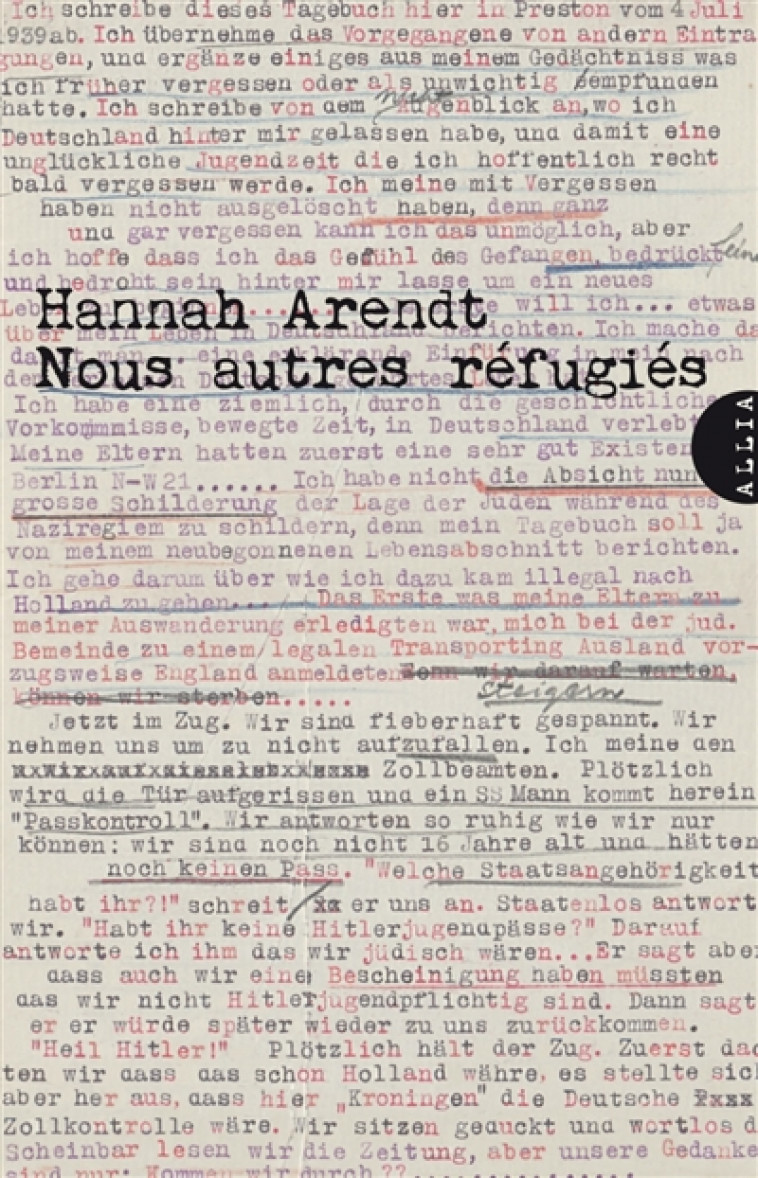 Ich schreibe dieses Tagebuch hier in Preston vom 4 Juli
1939ab. Ich übernehme das Vorgegangene von andern Eintra
gungen, und ergänze einiges aus meinem Gedächtniss was
ich früher vergessen oder als unwichtig empfunden
hatte. Ich schreibe von dem Augenblick an, wo ich
Deutschland hinter mir gelassen habe, und damit eine
unglückliche Jugendzeit die ich hoffentlich recht
bald vergessen werde. Ich meine mit Vergessen
haben nicht ausgelöscht haben, denn ganz
und gar vergessen kann ich das unmöglich, aber
ich hoffe dass ich das Gefühl des Gefangen, bedrückt
und bedroht sein hinter mir lasse um ein neues
Hannah Arendt
will ich... etwas
über mein Leben in Deutschland berichten. Ich mache da
Nous autres réfugiés
Ich habe eine ziemlich, durch die geschichtliche
Vorkommnisse, bewegte Zeit, in Deutschland verlebt
Meine Eltern hatten zuerst eine sehr gut Existen
ALLIA
Berlin N-W21...... Ich habe nicht die Absicht nun
grosse Schilderung der Lage der Juden während des
Naziregiem zu schildern, denn mein Tagebuch soll ja
von meinem neubegonnenen Lebensabschnitt berichten.
Ich gehe darum über wie ich dazu kam illegal nach
Holland zu gehen.... Das Erste was meine Eltern zu
meiner Auswanderung erledigten war, mich bei der jud.
Bemeinde zu einem legalen Transporting Ausland vor-
zugsweise England anmeldeten Denn wir darauf warten,
können wir sterben.....
steigern
Jetzt im Zug. Wir sind fieberhaft gespannt. Wir
nehmen uns um zu nicht aufzufallen. Ich meine den
Zollbeamten. Plötzlich
wird die Tür aufgerissen und ein SS Mann kommt herein
"Passkontroll". Wir antworten so ruhig wie wir nur
können: wir sind noch nicht 16 Jahre alt und hätten
noch keinen Pass. "Welche Staatsangehörigkeit
habt ihr?!" schreit er uns an. Staatenlos antwort
wir. "Habt ihr keine Hitlerjugendpässe?" Darauf
antworte ich ihm das wir jüdisch wären...Er sagt abe
dass auch wir eine Bescheinigung haben müssten
das wir nicht Hitlerjugendpflichtig sind. Dann sagt
er er würde später wieder zu uns zurückkommen.
"Heil Hitler!" Plötzlich hält der Zug. Zuerst dac
ten wir dass das schon Holland währe, es stellte sic
aber her aus, dass hier „Kroningen" die Deutsche
Zollkontrolle wäre. Wir sitzen geduckt und wortlos d
Scheinbar lesen wir die Zeitung, aber unsere Gedanke
sind nur: Kommen wir durch ??................